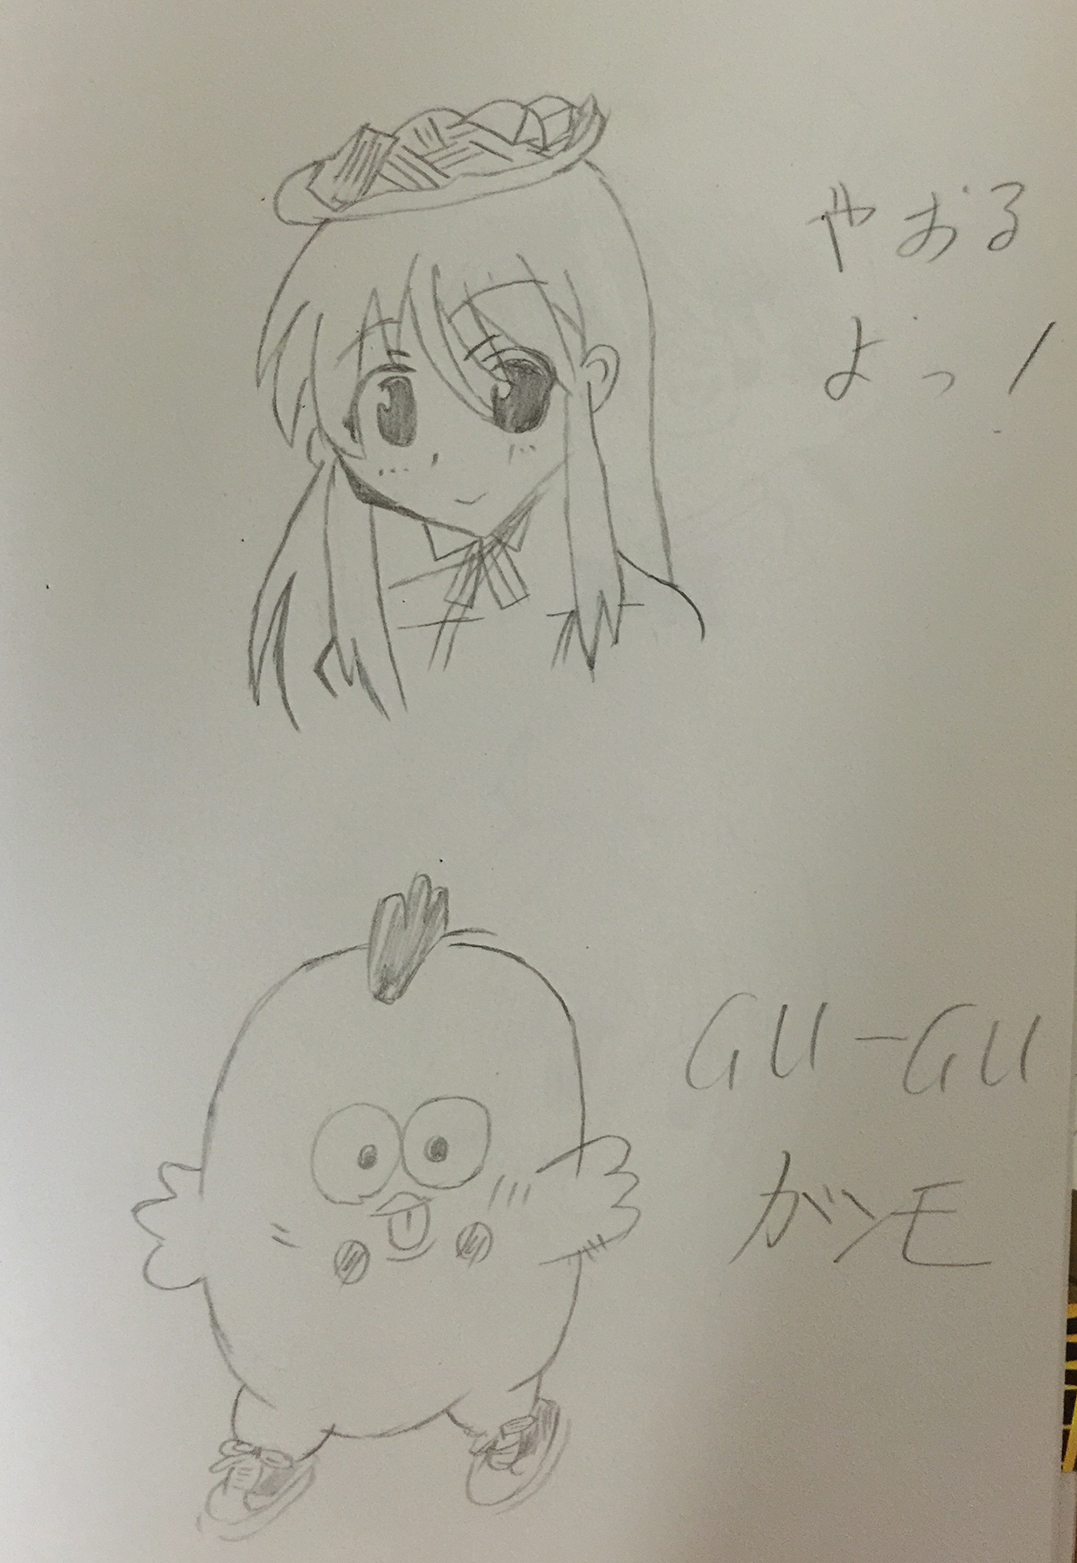 やおる
よっ!
GU-GU
ガンモ